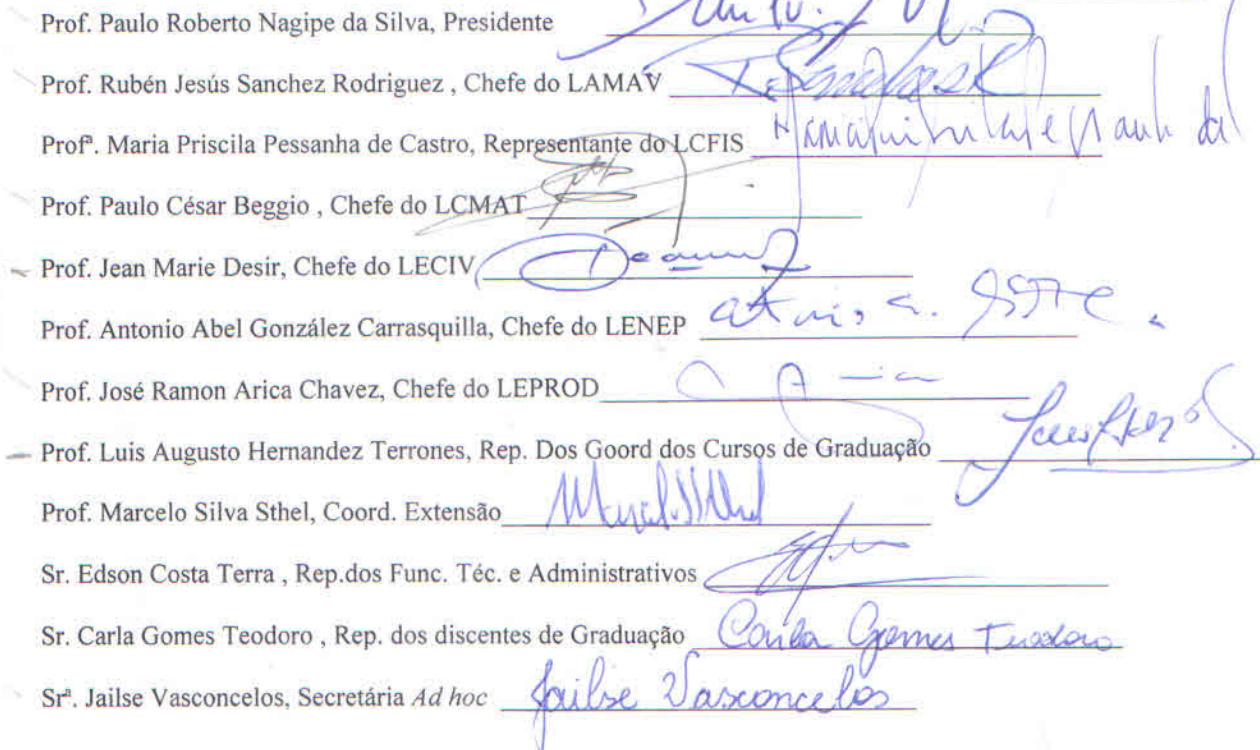 Prof. Paulo Roberto Nagipe da Silva, Presidente
Prof. Rubén Jesús Sanchez Rodriguez , Chefe do LAMAV
Profª. Maria Priscila Pessanha de Castro, Representante do LCFIS
Prof. Paulo César Beggio , Chefe do LCMAT
Prof. Jean Marie Desir, Chefe do LECIV
Prof. Antonio Abel González Carrasquilla, Chefe do LENEP
Prof. José Ramon Arica Chavez, Chefe do LEPROD
Prof. Luis Augusto Hernandez Terrones, Rep. Dos Goord dos Cursos de Graduação
Prof. Marcelo Silva Sthel, Coord. Extensão
Sr. Edson Costa Terra , Rep.dos Func. Téc. e Administrativos
Sr. Carla Gomes Teodoro , Rep. dos discentes de Graduação Carla Gomes Teodoro
Srª. Jailse Vasconcelos, Secretária Ad hoc Jailse Vasconcelos